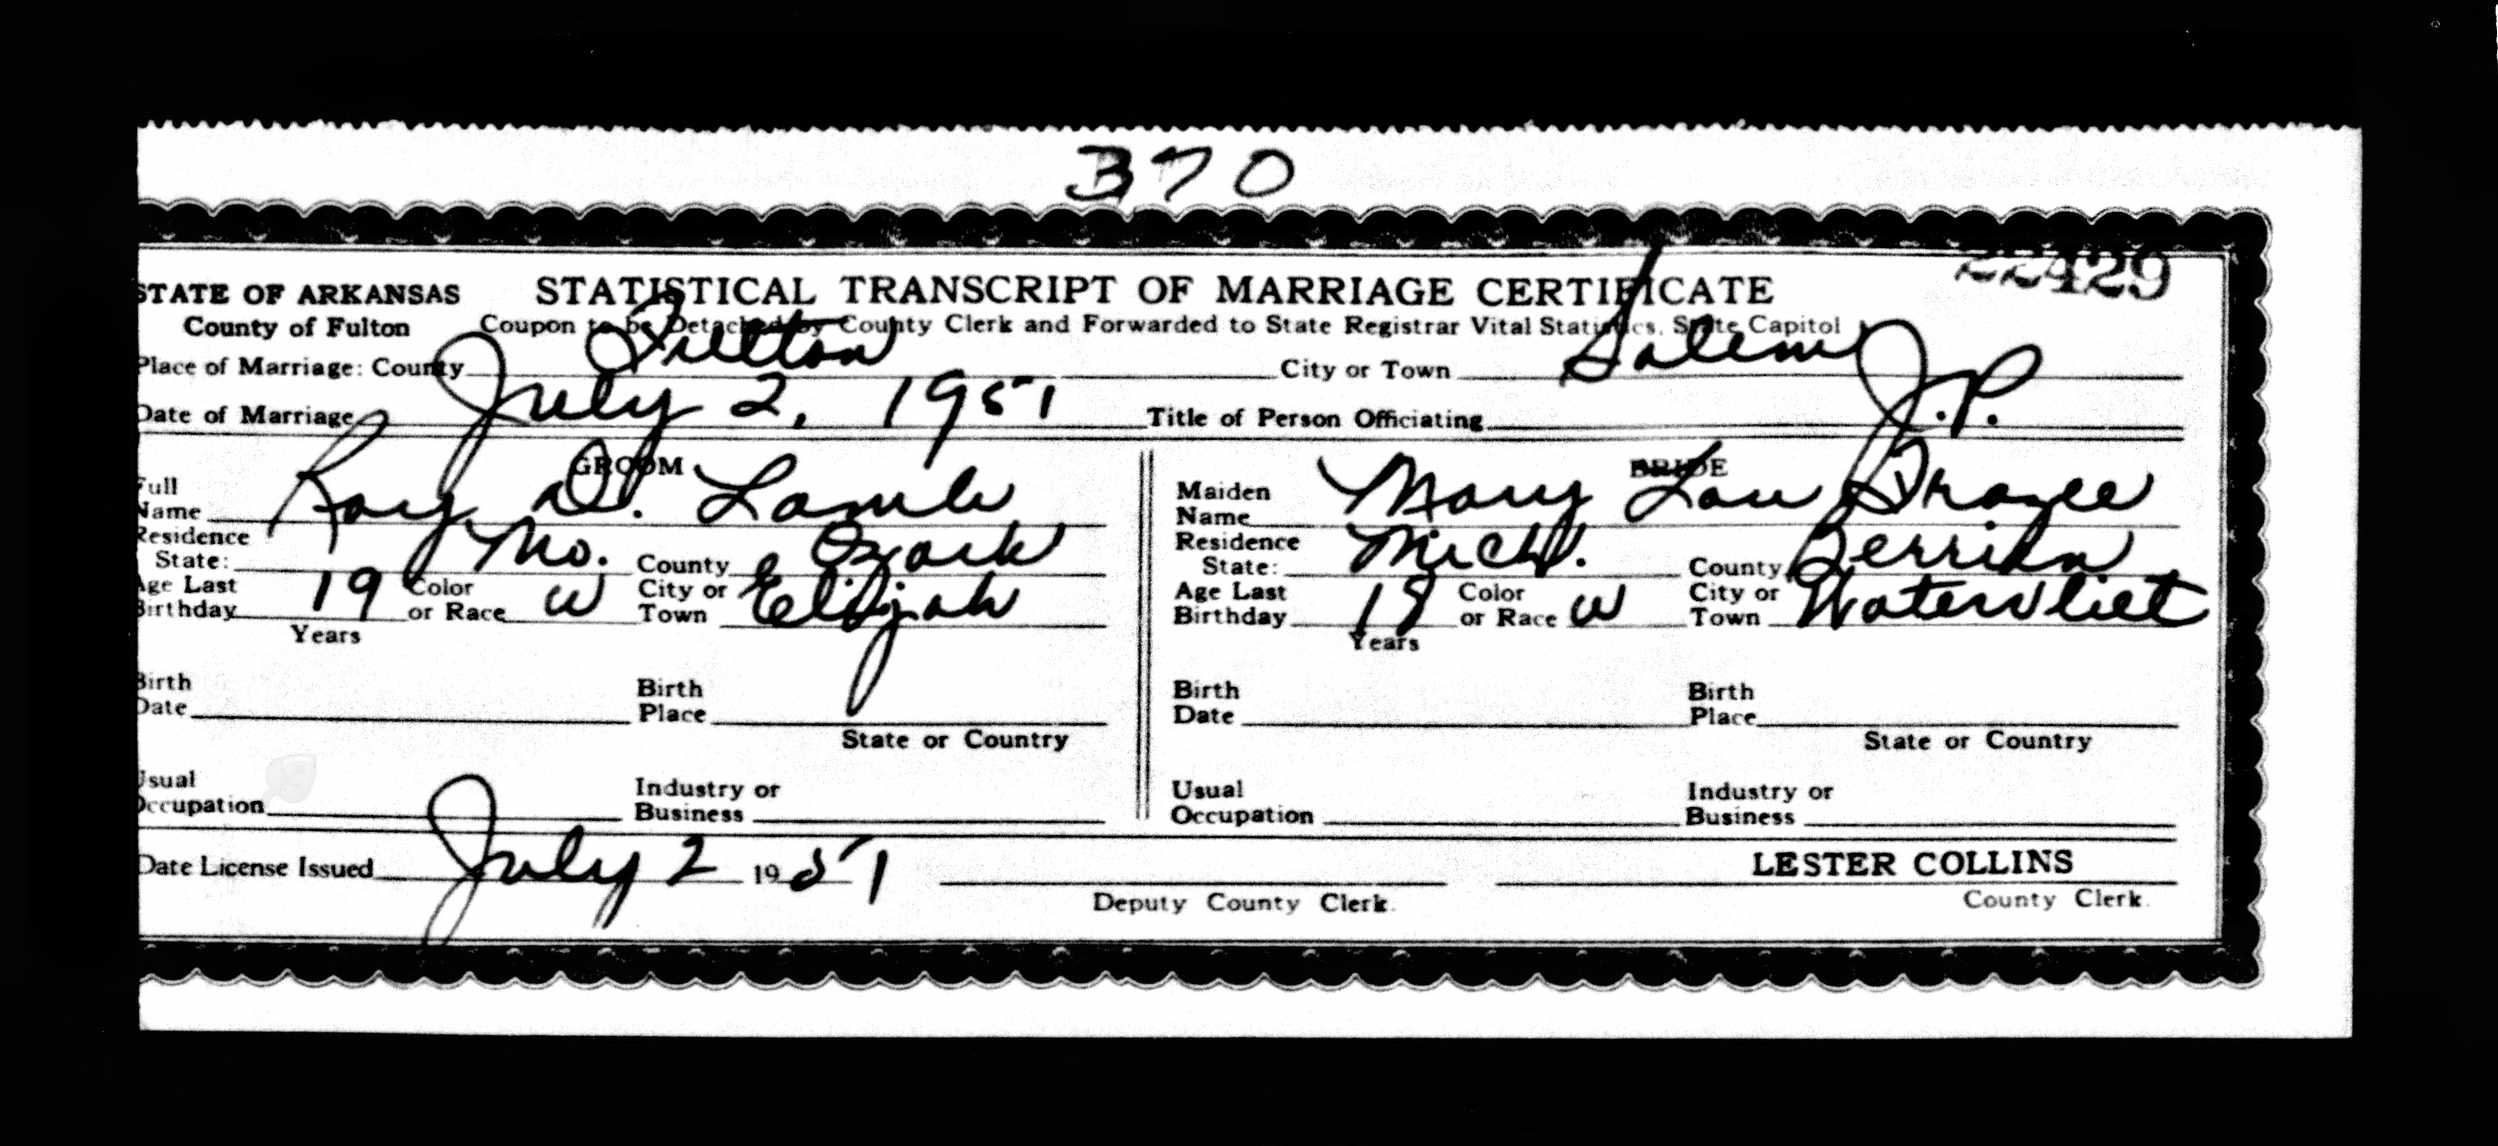 370
22429
STATE OF ARKANSAS STATISTICAL TRANSCRIPT OF MARRIAGE CERTIFICATE
County of Fulton Coupon to be Detached by County Clerk and Forwarded to State Registrar Vital Statistics, State Capitol
Place of Marriage: County Fulton City or Town Salem
Date of Marriage July 2, 1951 Title of Person Officiating J.P.
GROOM
Full Name Roy D. Lamb
Residence State: Mo. County Ozark
Age Last Birthday 19 Years Color or Race W City or Town Elijah
Birth Date Birth Place
State or Country
Usual Occupation Industry or Business
BRIDE
Maiden Name Mary Lou Frazee
Residence State: Mich. County Berrien
Age Last Birthday Years Color or Race W City or Town Watervliet
Birth Date Birth Place
State or Country
Usual Occupation Industry or Business
Date License Issued July 2 1951 LESTER COLLINS
Deputy County Clerk. County Clerk.